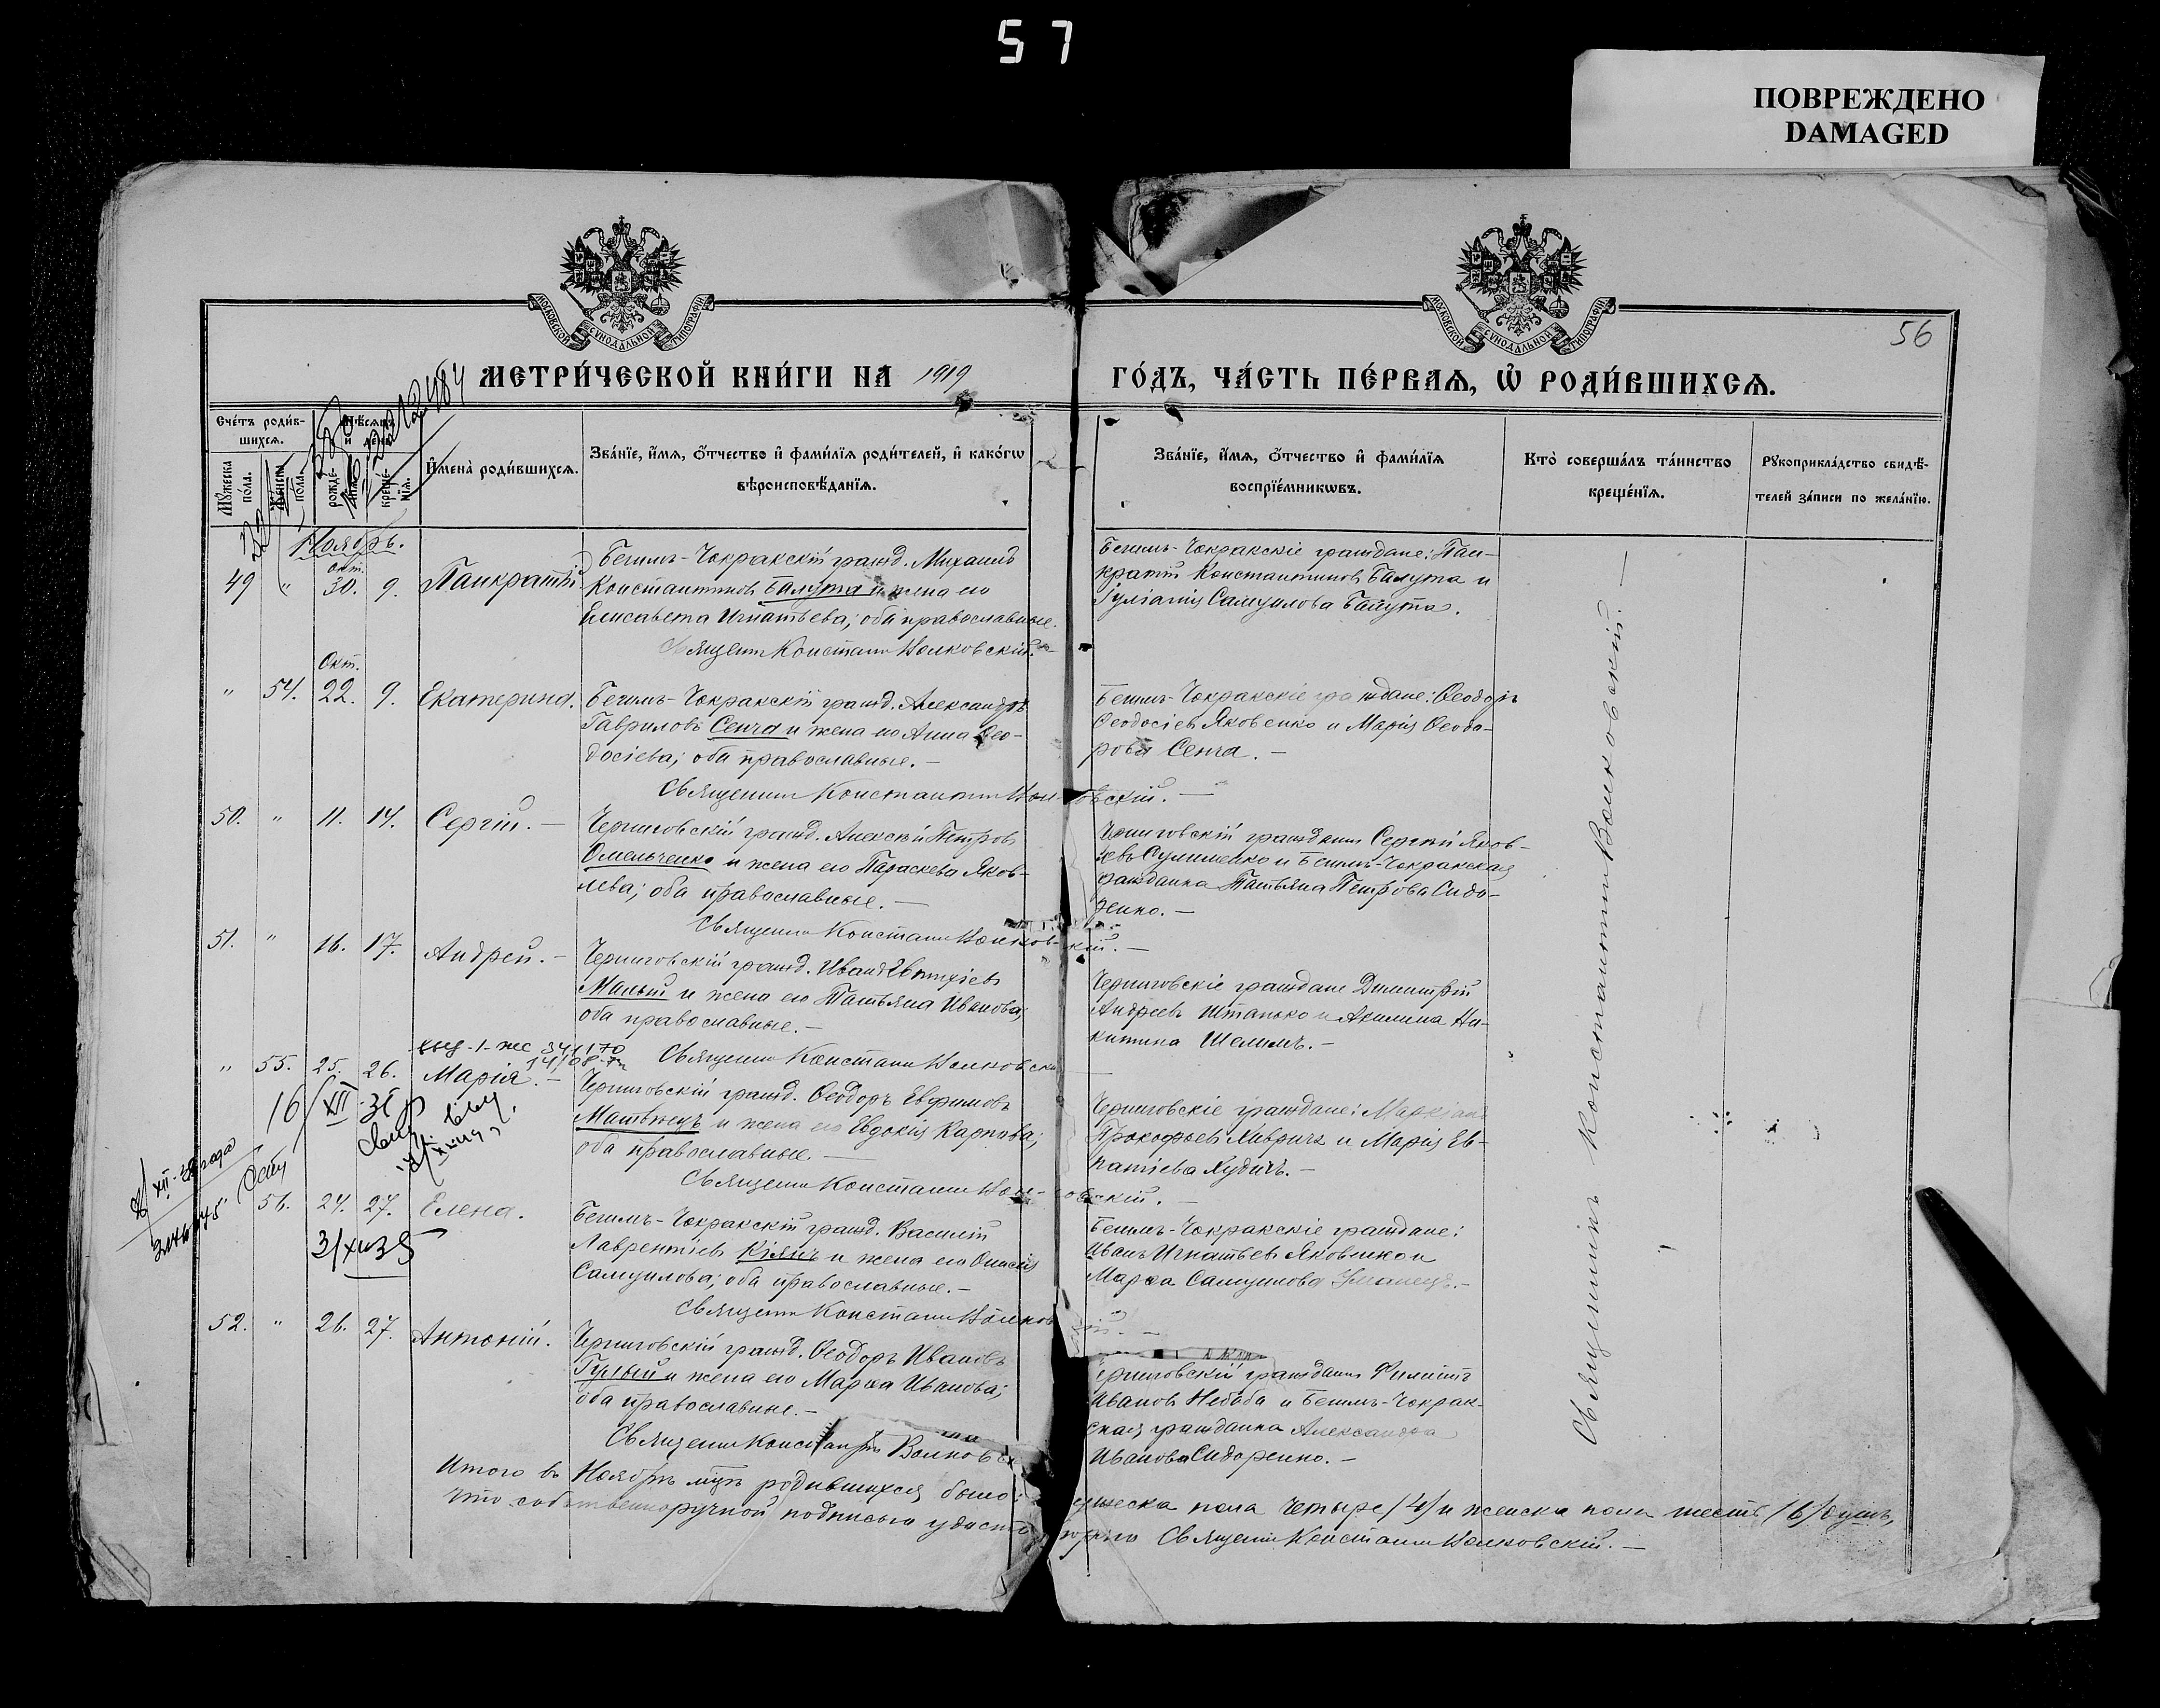 57
ПОВРЕЖДЕНО
DAMAGED
56
МОСКОВСКОЙ СѴНОДАЛЬНОЙ ТИПОГРАФІИ
МОСКОВСКОЙ СѴНОДАЛЬНОЙ ТИПОГРАФІИ
МЕТРИ́ЧЕСКОЙ КНИ́ГИ НА 1919 ГО́ДЪ, ЧА́СТЬ ПЕ́РВАѦ, Ѡ҆ РОДИ́ВШИХСѦ.
Сче́тъ роди́в-
шихсѧ.
Мѣ́сѧцъ
и҆ день
Мꙋ́жеска по́ла.
Же́нска по́ла.
рожде́-
нїѧ.
креще́-
нїѧ.
И҆мена̀ роди́вшихсѧ.
Зва́нїе, и҆́мѧ, ѻ҆́тчество и҆ фами́лїѧ роди́телей, и҆ како́гѡ
вѣроисповѣ́данїѧ.
Зва́нїе, и҆́мѧ, ѻ҆́тчество и҆ фами́лїѧ
воспрїе́мникѡвъ.
Кто̀ соверша́лъ та́инство
креще́нїѧ.
Рꙋкоприкла́дство свидѣ́-
телей за́писи по жела́нїю.
Ноябрь.
49 " Окт. 30. 9. Панкратій
Бегимъ-Чокракскій гражд. Михаилъ
Константиновъ Балута и жена его
Елисавета Игнатьева; оба православные.
Священ Констант Волковскій.
Бегимъ-Чокракскіе граждане: Пан-
кратій Константиновъ Балута и
Іуліанія Самуилова Балута.
" 54. Окт. 22. 9. Екатерина.
Бегимъ-Чокракскій гражд. Александръ
Гавриловъ Сенча и жена его Анна Ѳео-
досіева; оба православные. –
Священник Константин Вол-овскій. –
Бегимъ-Чокракскіе граждане: Ѳеодоръ
Ѳеодосіевъ Яковенко и Марія Ѳеодо-
рова Сенча. –
50. " 11. 14. Сергій. –
Черниговскій гражд. Алексій Петровъ
Омельченко и жена его Параскева Яков-
лева; оба православные. –
Священн Констант Волков-кій. –
Черниговскій гражданинъ Сергій Яков-
левъ Сулименко и Бегимъ-Чокракская
гражданка Татьяна Петрова Сидо-
ренко. –
51. " 16. 17. Андрей. –
Черниговскій гражд. Иванъ Евтихіевъ
Малый и жена его Татьяна Иванова;
оба православные. –
Священн Констант Волковски
Черниговскіе граждане Димитрій
Андреевъ Штанько и Акилина Ни-
китина Шелимъ. –
" 55. 25. 26. Марія. –
Черниговскій гражд. Ѳеодоръ Евфимовъ
Матвѣецъ и жена его Евдокія Карпова;
оба православные. –
Священн Констант Вол-овскій. –
Черниговскіе граждане: Маркіанъ
Прокофьевъ Хивричъ и Марія Ев-
патіева Худичъ. –
16/XII-35
56. 24. 27. Елена.
3/XII 35
Бегимъ-Чокракскій гражд. Василій
Лаврентіевъ Кіянъ и жена его Онисія
Самуилова; оба православные. –
Священн Констант Волков-ій. –
Бегимъ-Чокракскіе граждане:
Иванъ Игнатьевъ Яковенко и
Марѳа Самуилова Уманецъ. –
52. " 26. 27. Антоній.
Черниговскій гражд. Ѳеодоръ Ивановъ
Гулый и жена его Марѳа Иванова;
оба православные. –
Священн Констант Волковск
ерниговскій гражданинъ Филиппъ
Ивановъ Небаба и Бегимъ-Чокрак-
ская гражданка Александра
Иванова Сидоренко. –
Священникъ Константинъ Волковскій. –
Итого въ Ноябрѣ мцѣ родившихся было: мужеска пола четыре /4/ и женска пола шесть /6/ душъ,
что собственноручной подписью удосто-ѣряю Священн Констант Волковскій. –